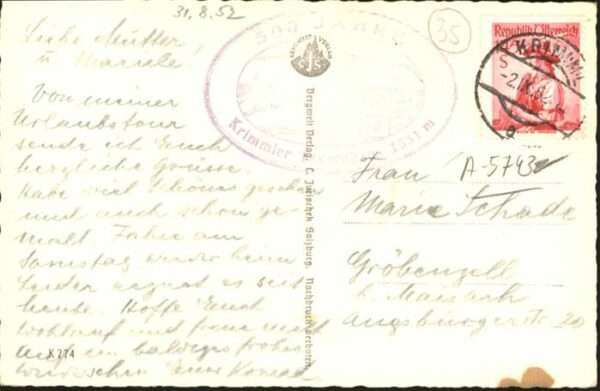 31.8.52
Liebe Mutter,
u
Von meiner
Urlaubstour
sende ich Euch
herzliche Grüsse.
Habe viel Schönes gesehen
und auch schon ge-
malt. Fahre am
Samstag wieder heim
Leider regnet es seit
heute. Hoffe Euch
wohlauf und freue mich
auf ein baldiges frohes
K 274
500 JAHRE
Krimmler
1631 m
Bergwelt Verlag, C. Jurischek Salzburg. Nachdruck verboten
35
Republik Österreich
KRIMML
Frau
A-5743
Marie Schade
Gröbenzell
b. Maisach
Augsburgerstr 20